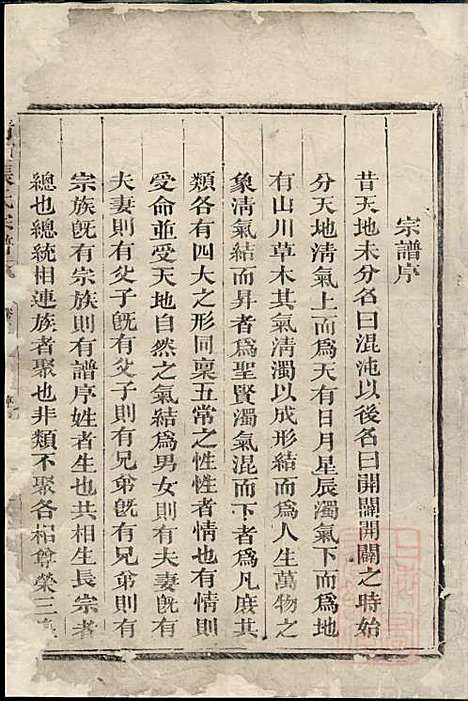 宗譜序
昔天地未分名曰混沌以後名曰開闢開闢之時始
分天地清氣上而爲天有日月星辰濁氣下而爲地
有山川草木其氣清濁以成形結而爲人生萬物之
象清氣結而昇者爲聖賢濁氣混而下者爲凡庶其
類各有四大之形同稟五常之性性者情也有情則
受命並受天地自然之氣結爲男女則有夫妻旣有
夫妻則有父子旣有父子則有兄弟旣有兄弟則有
宗族旣有宗族則有譜序姓者生也共相生長宗者
總也總統相連族者聚也非類不聚各相尊榮三
張氏宗譜